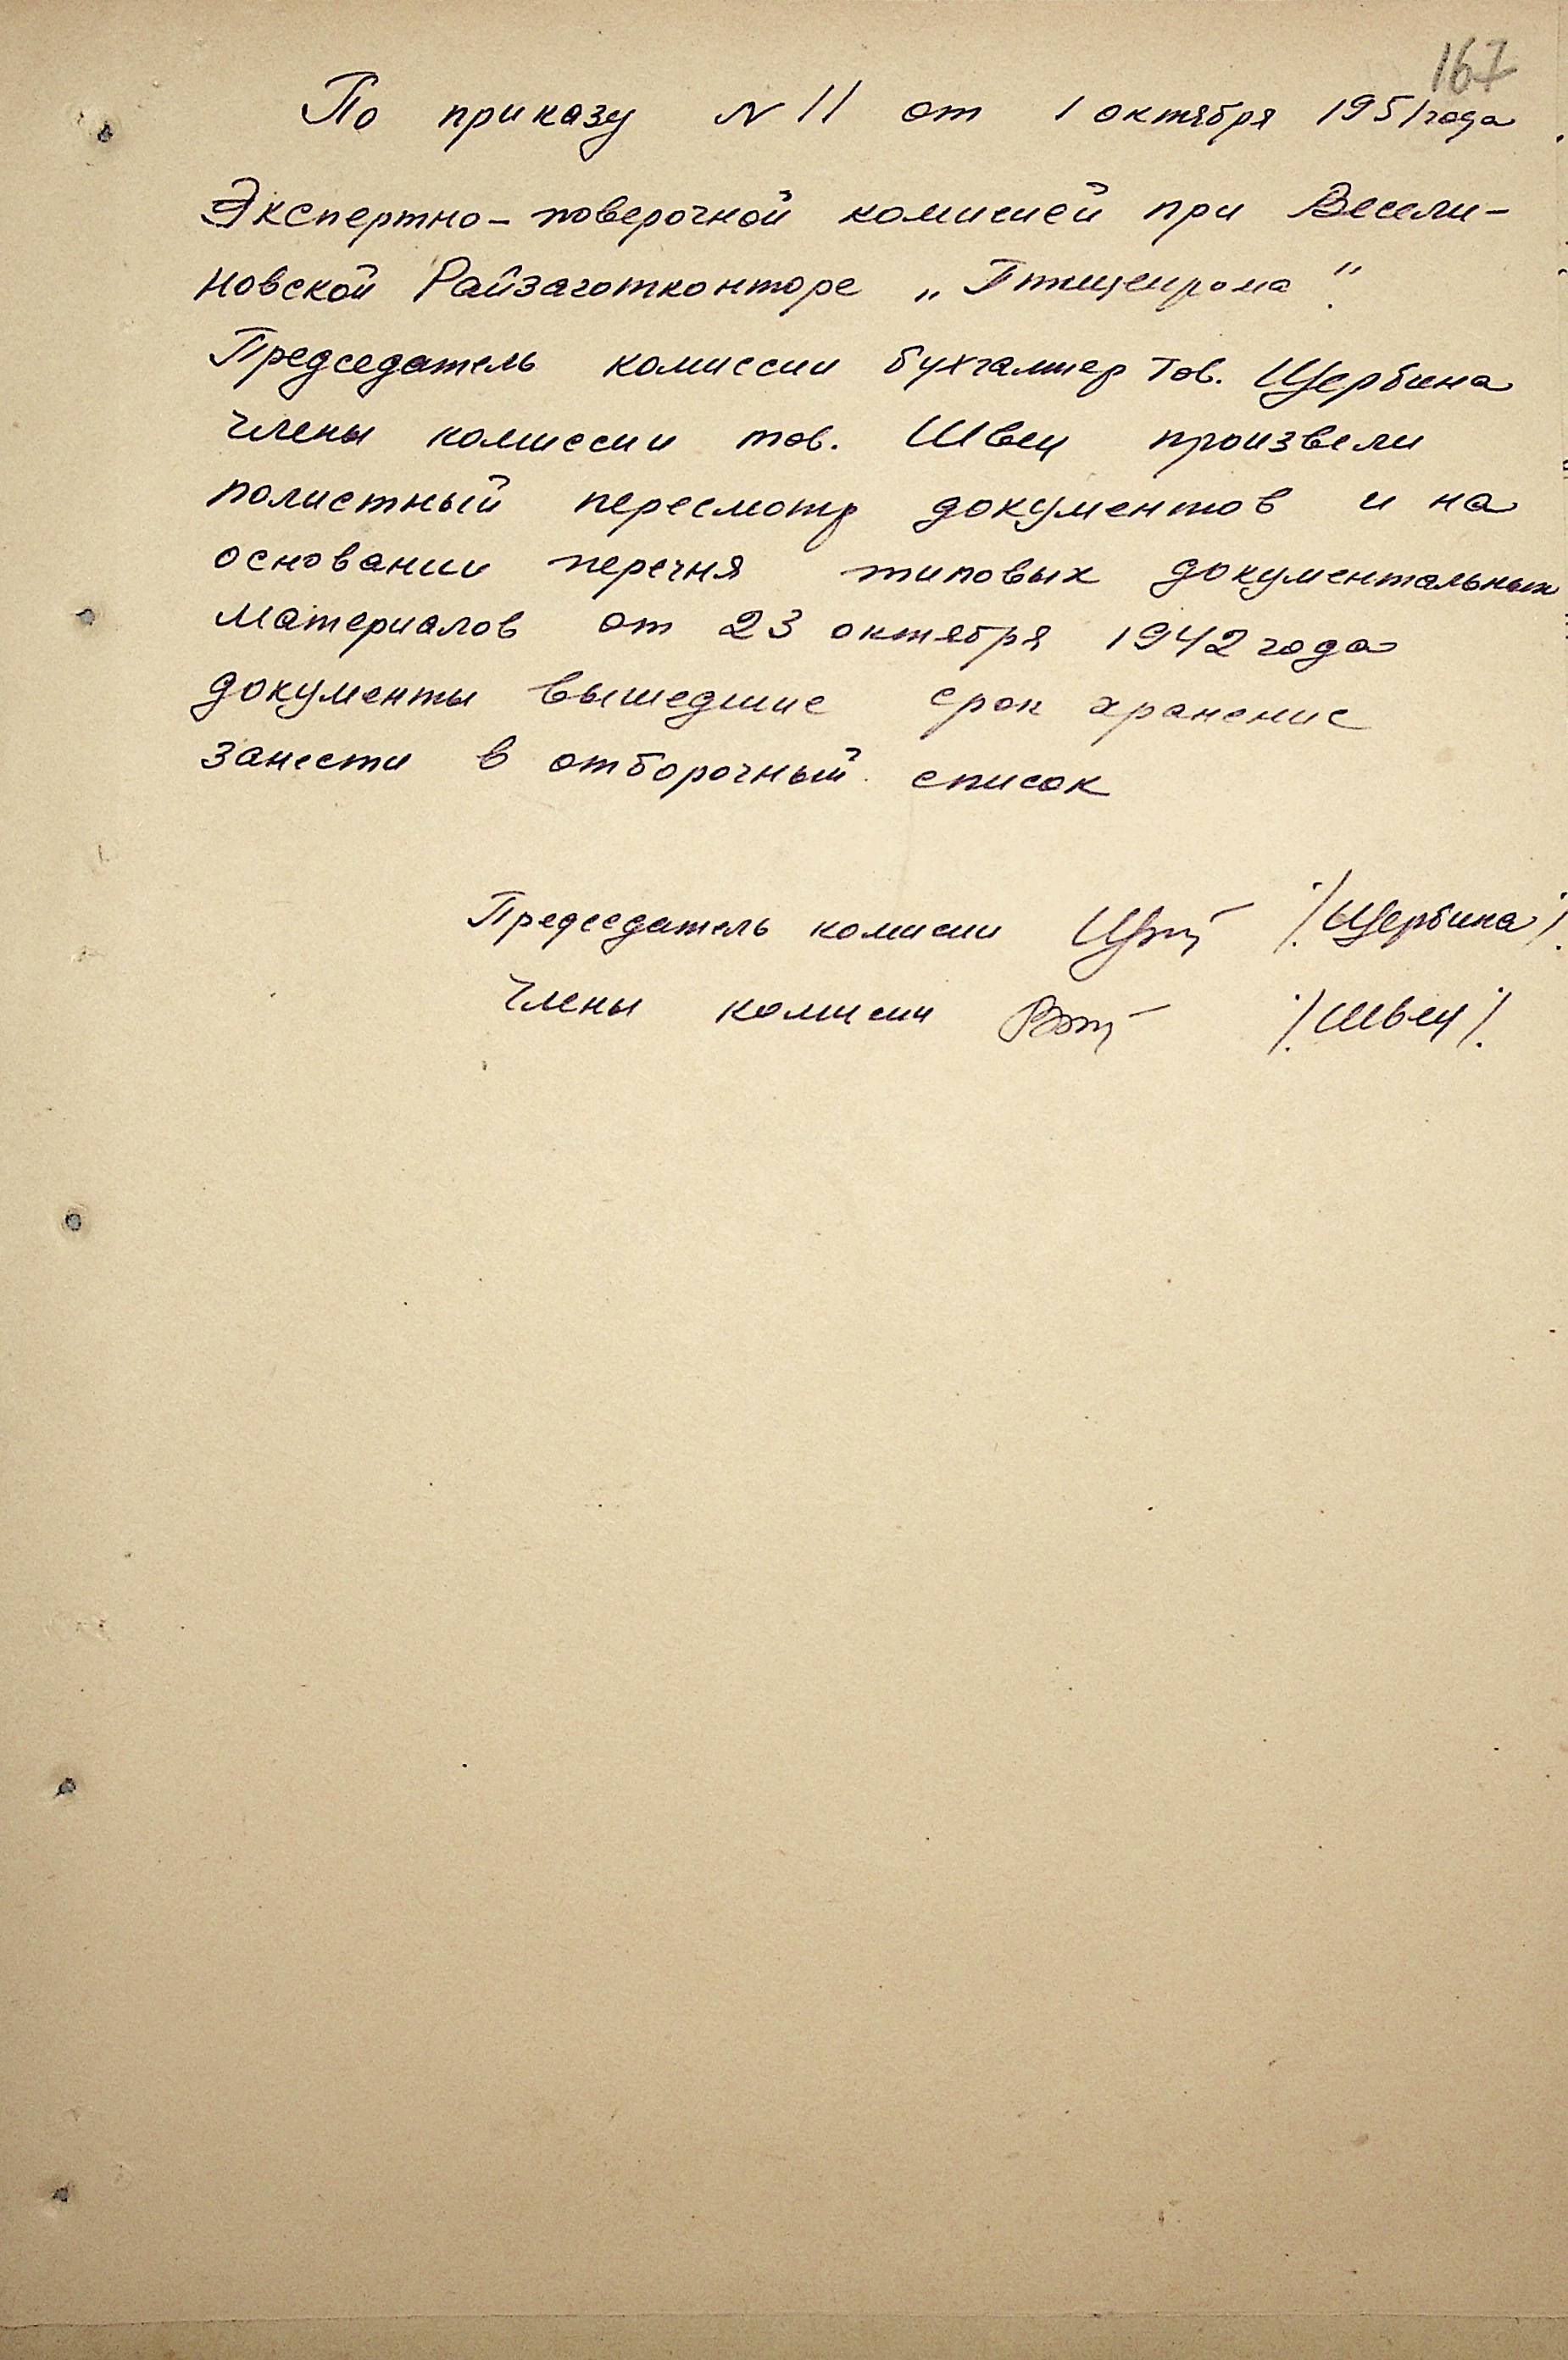 167
По приказу N 11 от 1 октября 1951 года
Экспертно-поверочной комисией при Весели-
новской Райзаготконторе „Птицепрома".
Председатель комиссии бухгалтер тов. Щербина
члены комиссии тов. Швец произвели
полистный пересмотр документов и на
основании перечня типовых документальных
материалов от 23 октября 1942 года
документы вышедшие срок хранение
занести в отборочный список
Председатель комисии /Щербина/
Члены комисии /Швец/